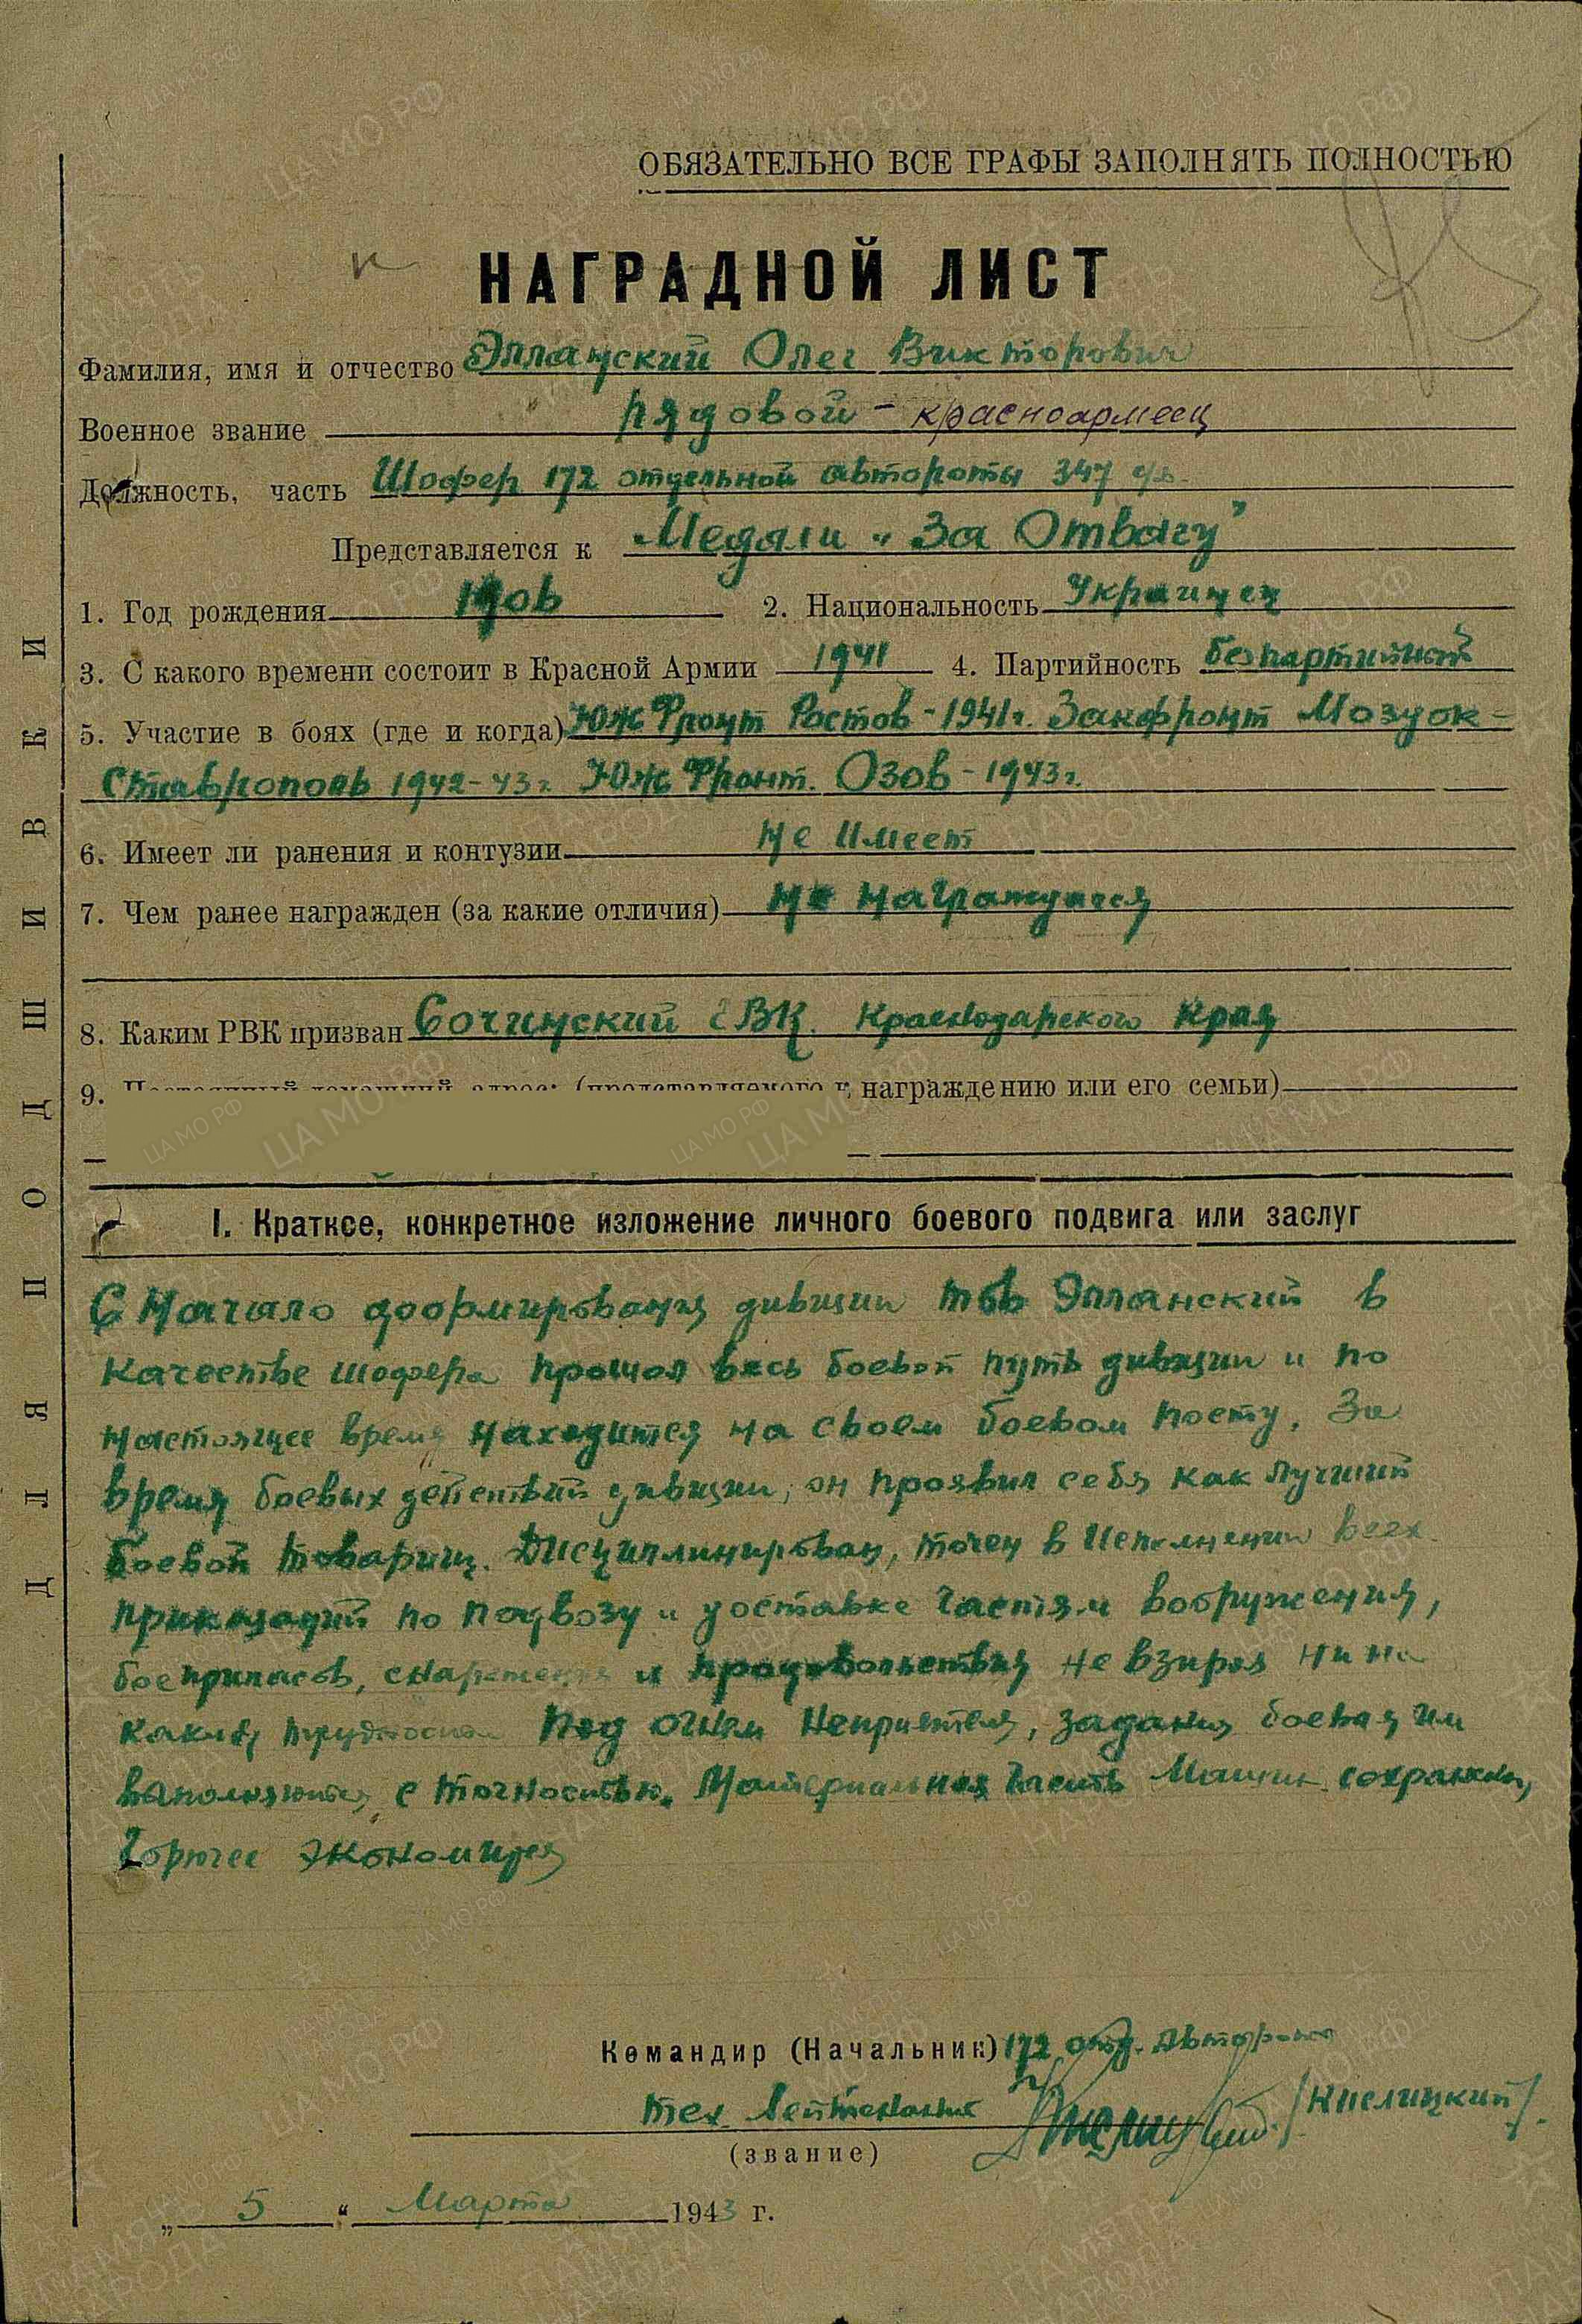 ОБЯЗАТЕЛЬНО ВСЕ ГРАФЫ ЗАПОЛНЯТЬ ПОЛНОСТЬЮ
НАГРАДНОЙ ЛИСТ
Фамилия, имя и отчество Эллаnский Олег Викторович
Военное звание рядовой - красноармеец
Должность, часть Шофер 172 отдельной автороты 347 с/д
Представляется к Медали "За Отвагу"
1. Год рождения 1906 2. Национальность Украинец
3. С какого времени состоит в Красной Армии 1941 4. Партийность безпартийный
5. Участие в боях (где и когда) Юж Фронт Ростов - 1941г. Закфронт Моздок -
Ставрополь 1942-43г. Юж Фронт. Озов - 1943г.
6. Имеет ли ранения и контузии не имеет
7. Чем ранее награжден (за какие отличия) не награждался
8. Каким РВК призван Сочинский ГВК Краснодарского Края
9. Постоянный домашний адрес: (представляемого к награждению или его семьи)
I. Краткое, конкретное изложение личного боевого подвига или заслуг
С начало доформирования дивизии тов Элланский в
качестве шофера прошол весь боевой путь дивизии и по
настоящее время находится на своем боевом посту. За
время боевых действий дивизии, он проявил себя как лучший
боевой товарищ. Дисциплинирован, точен в исполнении всех
приказаний по подвозу и доставке частям вооружения,
боеприпасов, снаряжения и продовольствия не взирая ни на
какие трудности Под огнем неприятеля, задания боевая им
выполняются с точностью. Материальная часть машин сохранена,
горючее экономирея
Командир (Начальник) 172 отд. Автороты
тех Лейтенант /Кислицкий/.
(звание)
„ 5 “ Марта 1943 г.
ДЛЯ ПОДШИВКИ
ЦА МО РФ
ПАМЯТЬ НАРОДА